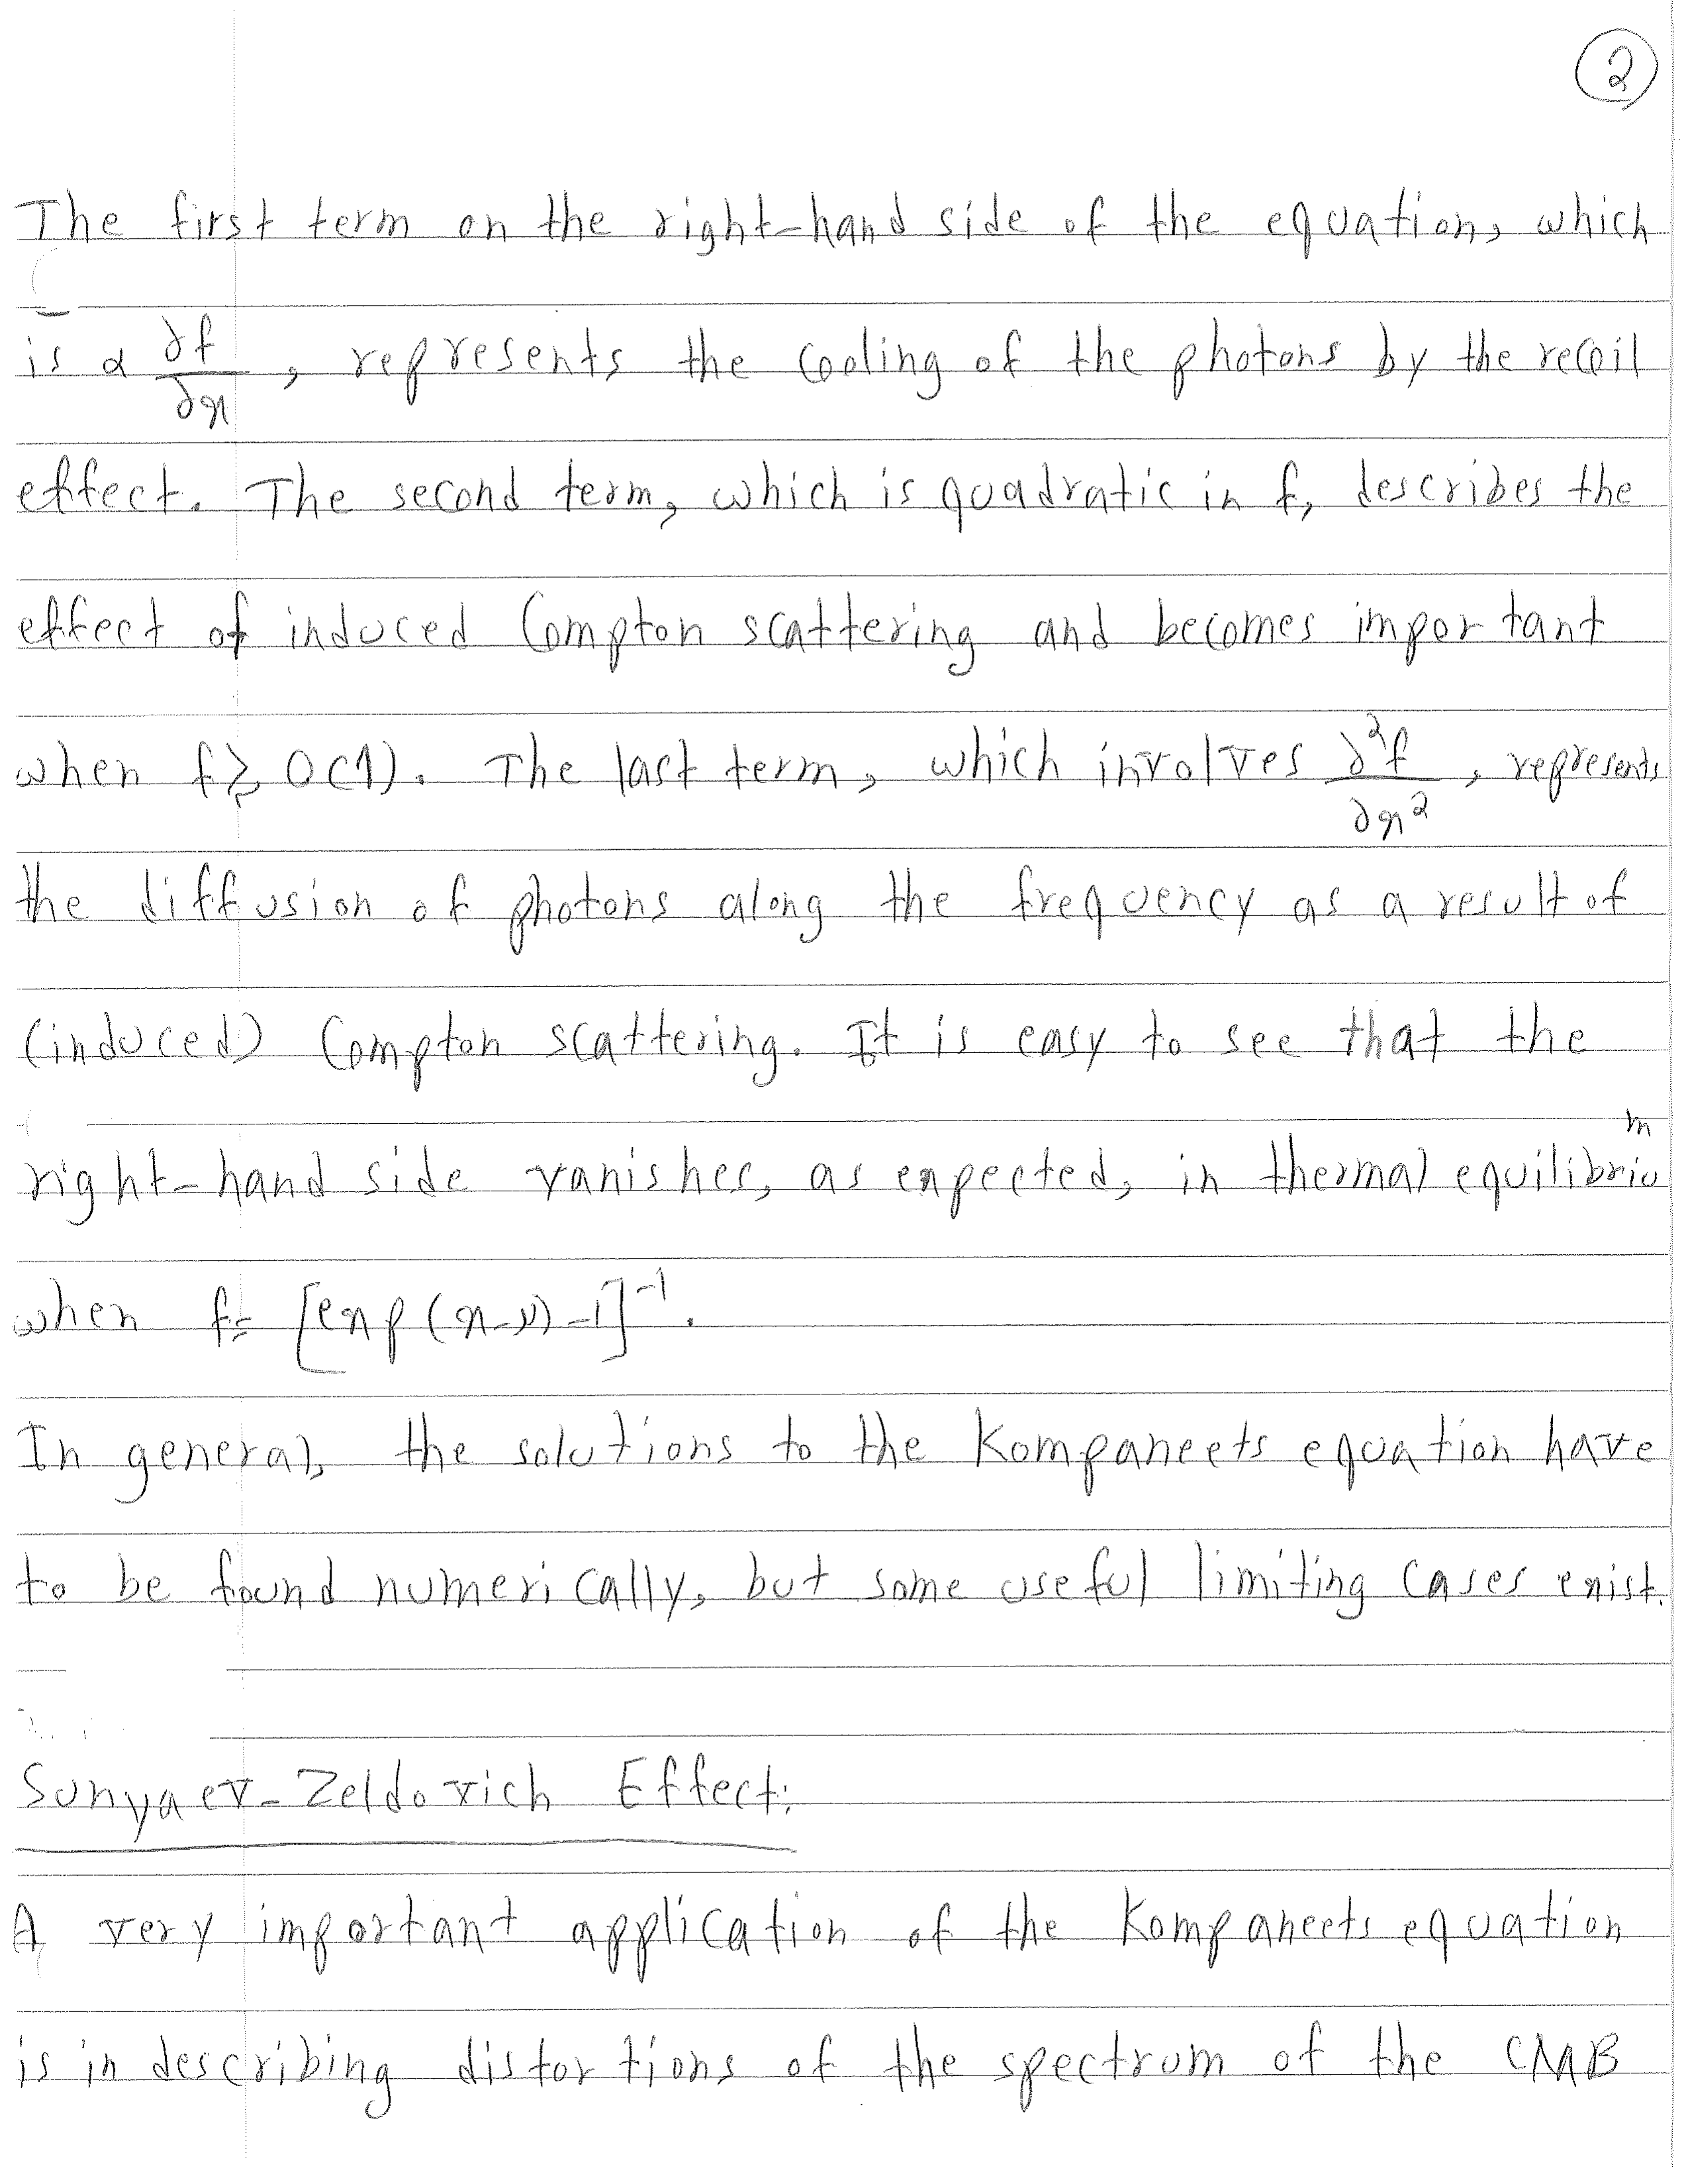 2
The first term on the right-hand side of the equation, which
is ∝ ∂f/∂x, represents the cooling of the photons by the recoil
effect. The second term, which is quadratic in f, describes the
effect of induced Compton scattering and becomes important
when f ≳ O(1). The last term, which involves ∂²f/∂x², represents
the diffusion of photons along the frequency as a result of
(induced) Compton scattering. It is easy to see that the
right-hand side vanishes, as expected, in thermal equilibrium
when f = [exp(x-ν)-1]⁻¹.
In general, the solutions to the Kompaneets equation have
to be found numerically, but some useful limiting cases exist.
Sunyaev-Zeldovich Effect:
A very important application of the Kompaneets equation
is in describing distortions of the spectrum of the CMB